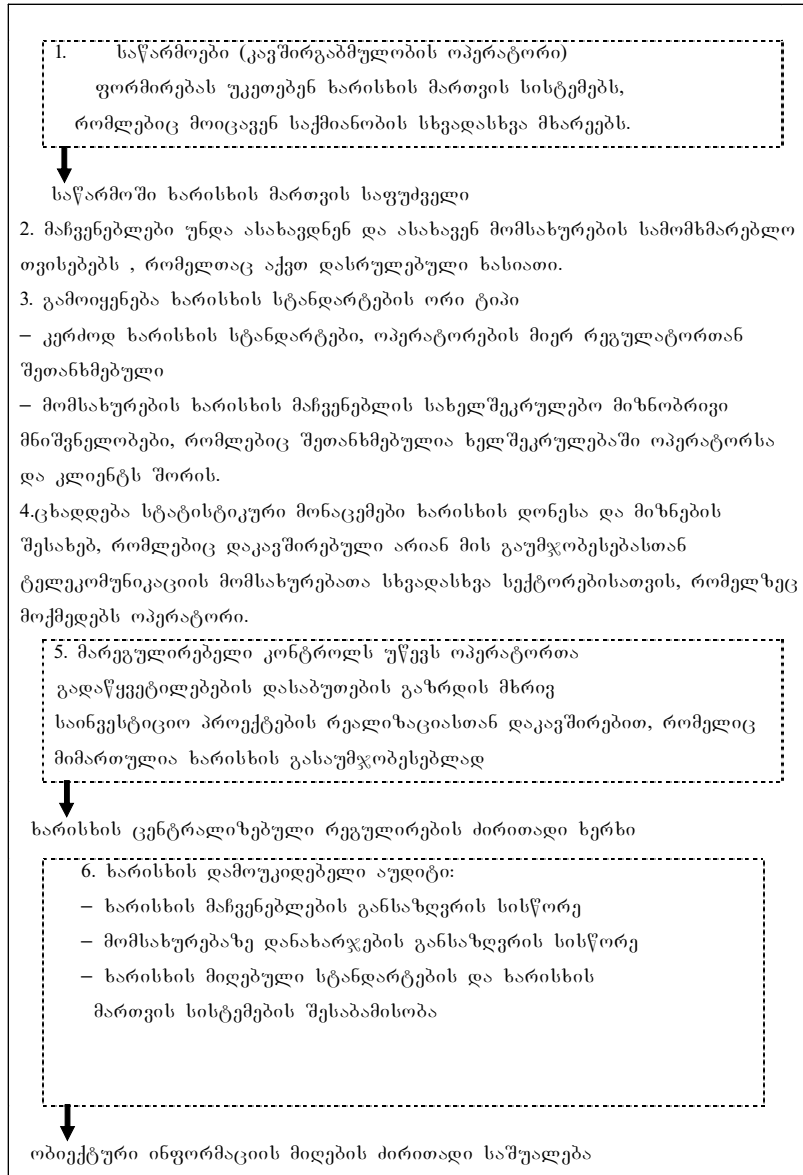 1. საწარმოები (კავშირგაბმულობის ოპერატორი)
ფორმირებას უკეთებენ ხარისხის მართვის სისტემებს,
რომლებიც მოიცავენ საქმიანობის სხვადასხვა მხარეებს.
საწარმოში ხარისხის მართვის საფუძველი
2. მაჩვენებლები უნდა ასახავდნენ და ასახავენ მომსახურების სამომხმარებლო
თვისებებს , რომელთაც აქვთ დასრულებული ხასიათი.
3. გამოიყენება ხარისხის სტანდარტების ორი ტიპი
– კერძოდ ხარისხის სტანდარტები, ოპერატორების მიერ რეგულატორთან
შეთანხმებული
– მომსახურების ხარისხის მაჩვენებლის სახელშეკრულებო მიზნობრივი
მნიშვნელობები, რომლებიც შეთანხმებულია ხელშეკრულებაში ოპერატორსა
და კლიენტს შორის.
4.ცხადდება სტატისტიკური მონაცემები ხარისხის დონესა და მიზნების
შესახებ, რომლებიც დაკავშირებული არიან მის გაუმჯობესებასთან
ტელეკომუნიკაციის მომსახურებათა სხვადასხვა სექტორებისათვის, რომელზეც
მოქმედებს ოპერატორი.
5. მარეგულირებელი კონტროლს უწევს ოპერატორთა
გადაწყვეტილებების დასაბუთების გაზრდის მხრივ
საინვესტიციო პროექტების რეალიზაციასთან დაკავშირებით, რომელიც
მიმართულია ხარისხის გასაუმჯობესებლად
ხარისხის ცენტრალიზებული რეგულირების ძირითადი ხერხი
6. ხარისხის დამოუკიდებელი აუდიტი:
– ხარისხის მაჩვენებლების განსაზღვრის სისწორე
– მომსახურებაზე დანახარჯების განსაზღვრის სისწორე
– ხარისხის მიღებული სტანდარტების და ხარისხის
მართვის სისტემების შესაბამისობა
ობიექტური ინფორმაციის მიღების ძირითადი საშუალება